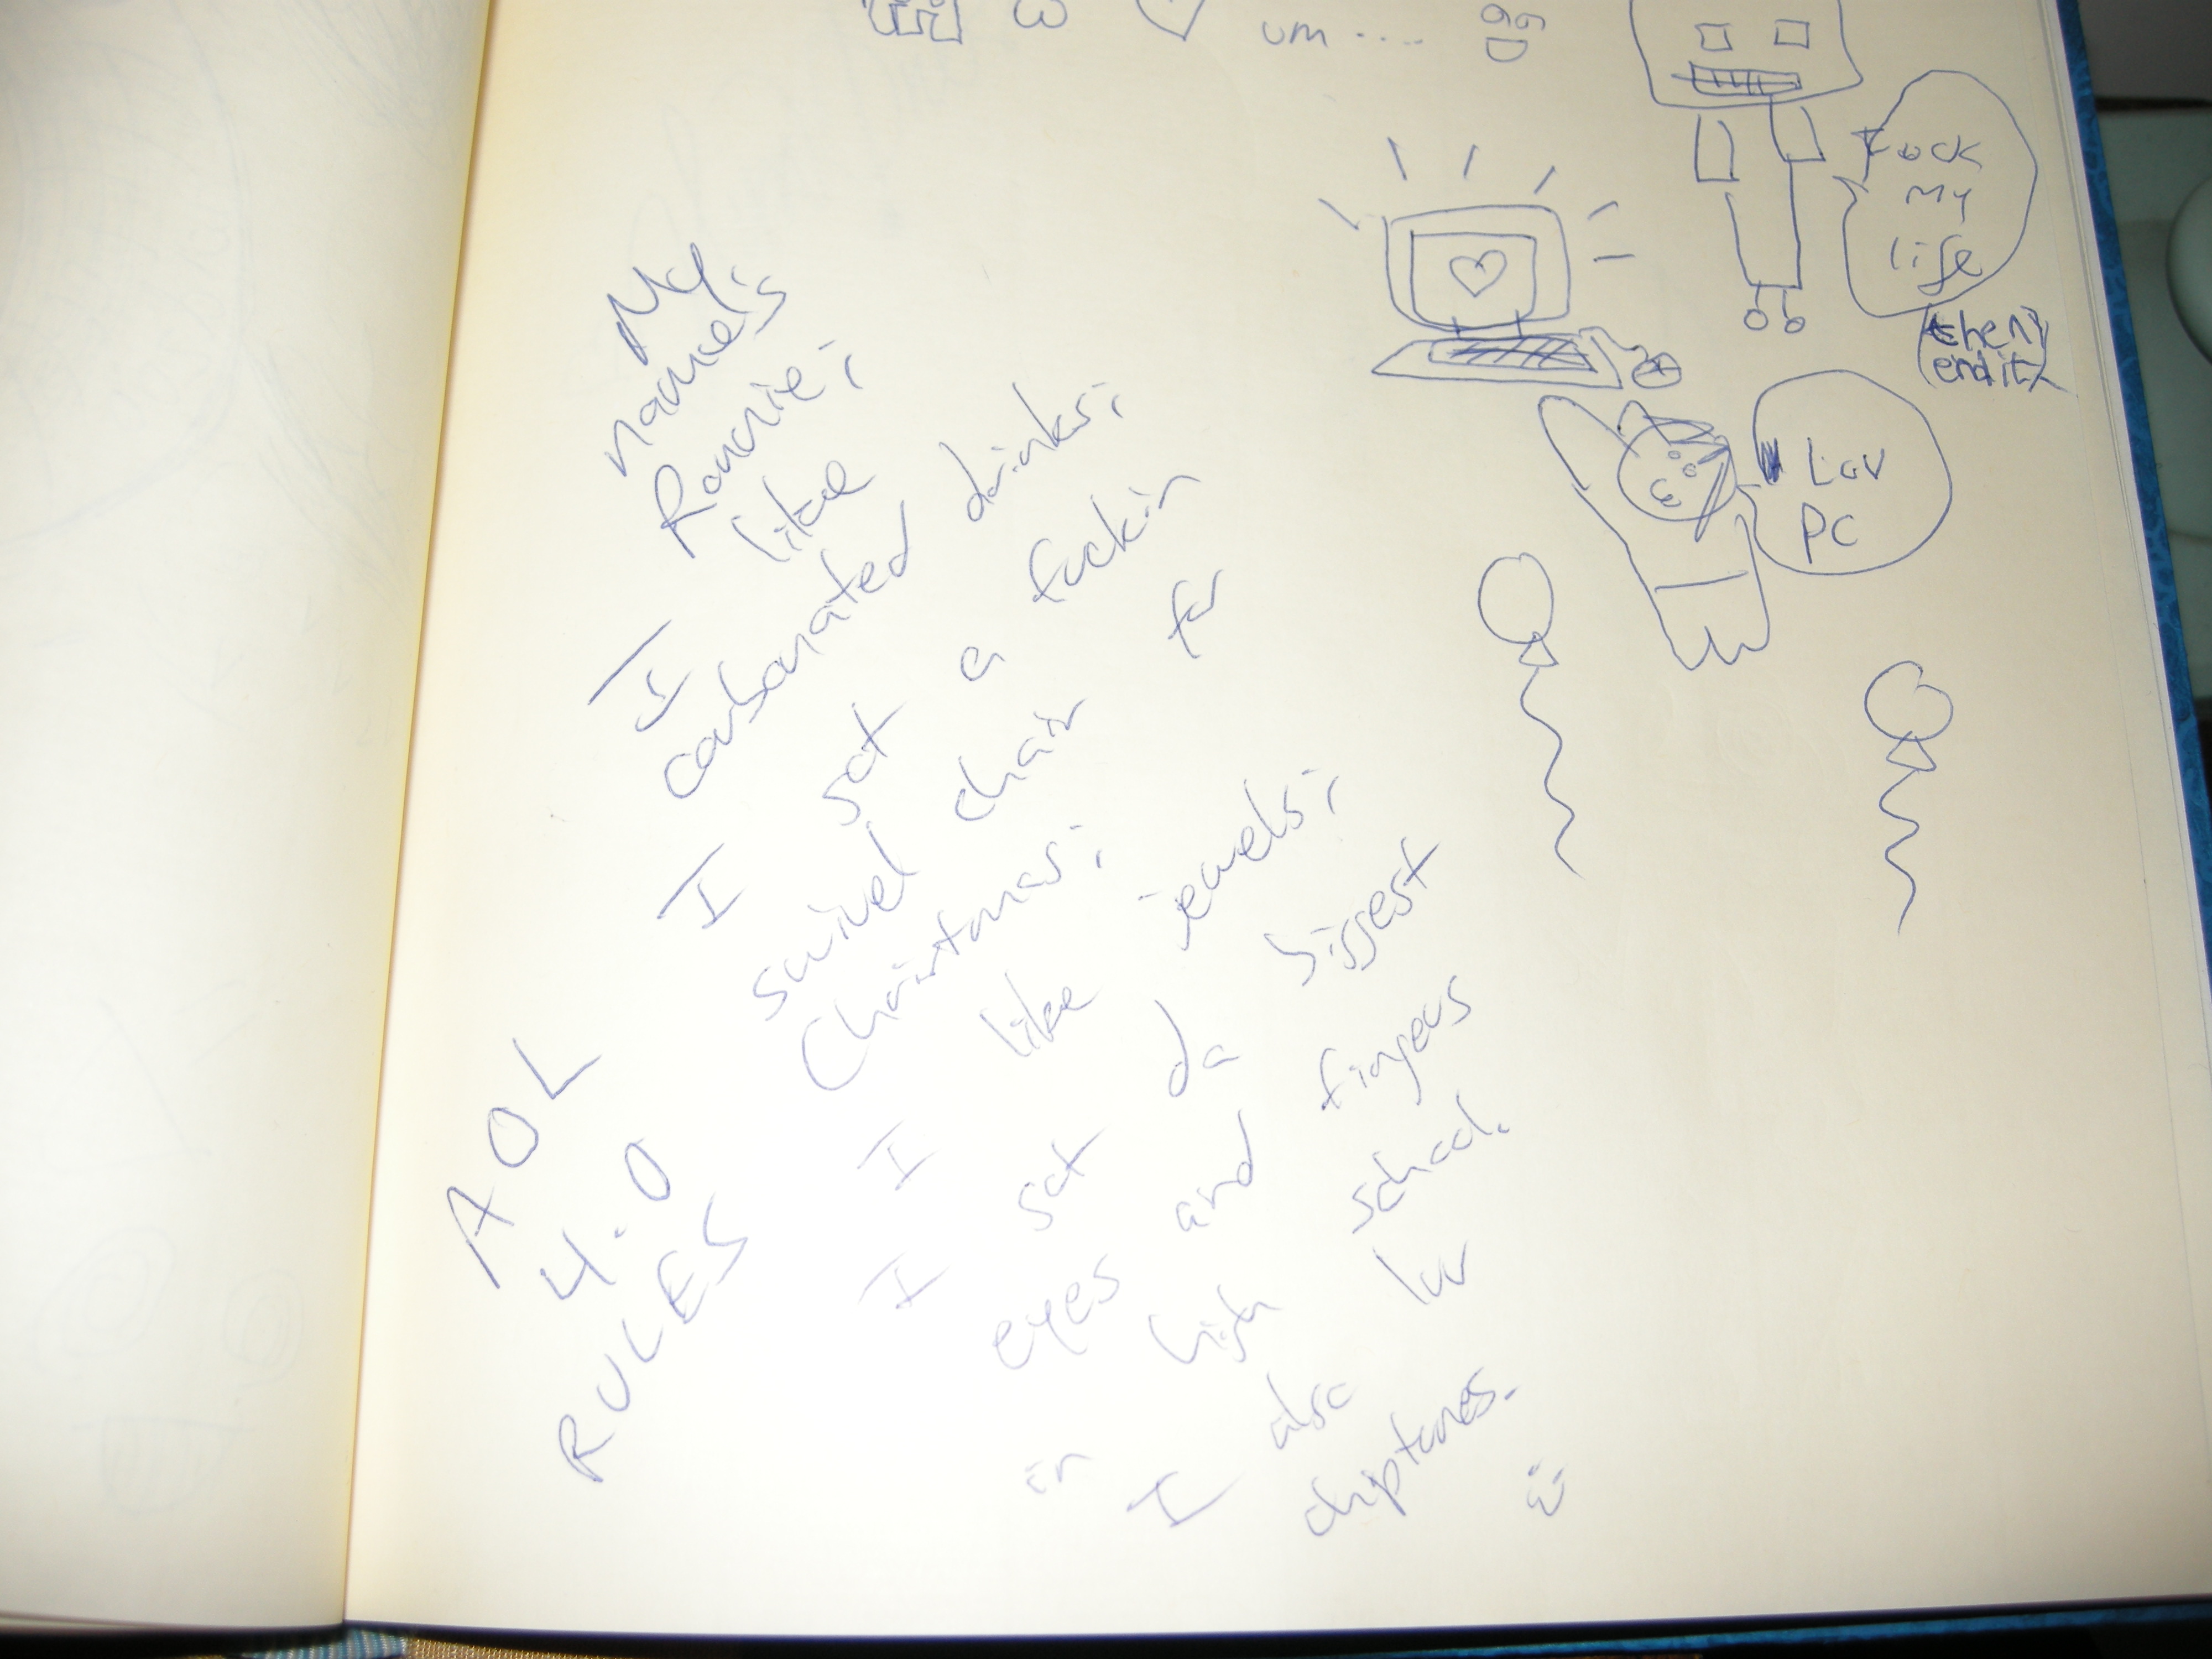 um....
Fuck
My
life
(then)
end it
Luv
PC
My
name's
Ronnie;
I like
carbonated drinks;
I got a fuckin
swivel chair for
Christmas;
I like jewels;
I got da biggest
eyes and fingers
in high school.
I also luv
chiptunes.
:3
AOL
4.0
RULES